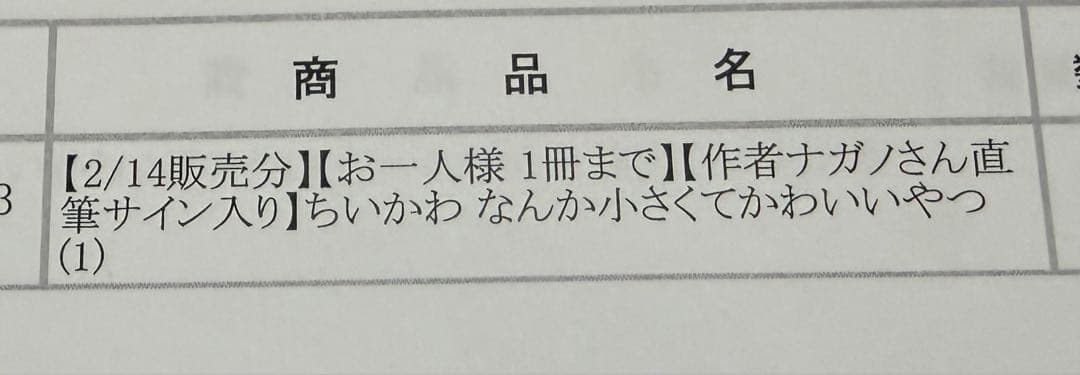 商品名
3
【2/14販売分】【お一人様 1冊まで】【作者ナガノさん直
筆サイン入り】ちいかわ なんか小さくてかわいいやつ
(1)